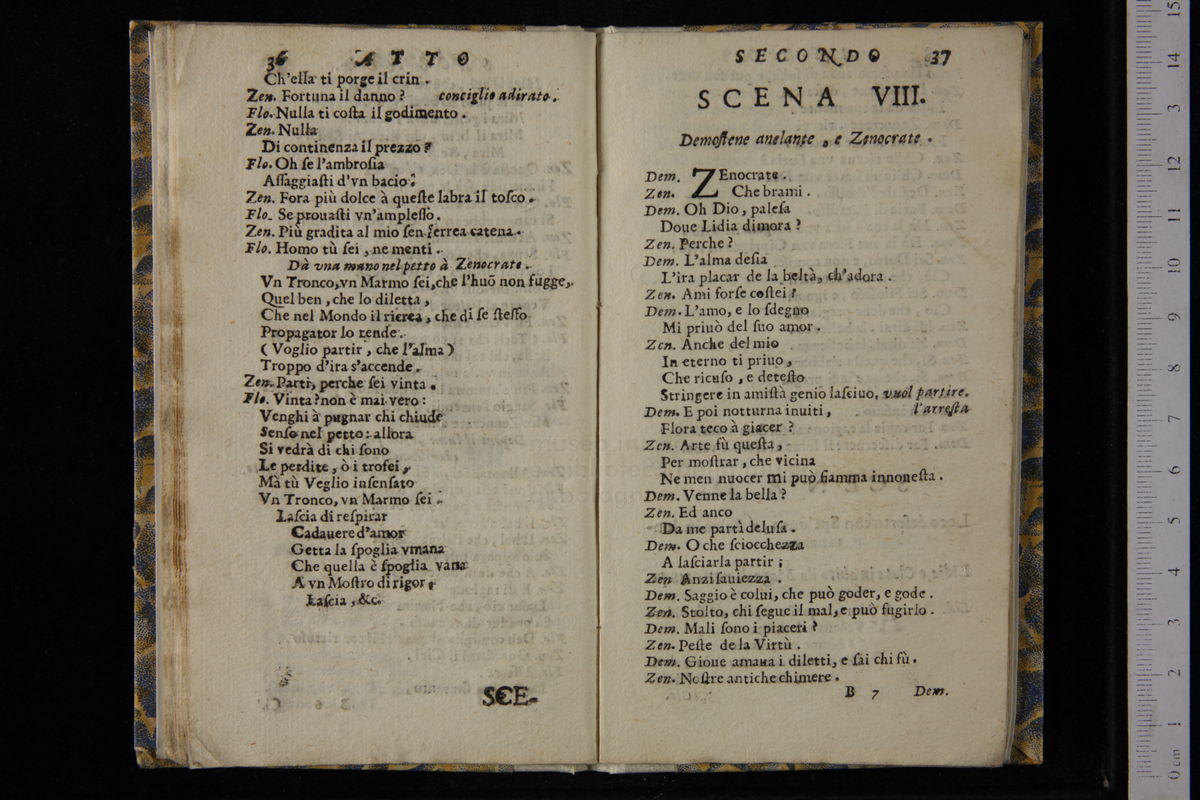 36 ATTO
Ch'essa ti porge il crin.
Zen. Fortuna il danno? conciglio adirato.
Flo. Nulla ti costa il godimento.
Zen. Nulla
Di continenza il prezzo?
Flo. Oh se l'ambrosia
Assaggiasti d'vn bacio:
Zen. Fora più dolce à queste labra il tosco.
Flo. Se prouasti vn'amplesso.
Zen. Più gradita al mio sen ferrea catena.
Flo. Homo tù sei, ne menti.
Dà vna mano nel petto à Zenocrate.
Vn Tronco, vn Marmo sei, che l'huõ non fugge,
Quel ben, che lo diletta,
Che nel Mondo il ricrea, che di se stesso
Propagator lo rende.
(Voglio partir, che l'alma)
Troppo d'ira s'accende.
Zen. Parti, perche sei vinta.
Flo. Vinta? non è mai vero:
Venghi à pugnar chi chiude
Senso nel petto: allora
Si vedrà di chi sono
Le perdite, ò i trofei,
Mà tù Veglio insensato
Vn Tronco, vn Marmo sei.
Lascia di respirar
Cadauere d'amor
Getta la spoglia vmana
Che quella è spoglia vana
A vn Mostro di rigor.
Lascia, &c.
SCE-
SECONDO 37
SCENA VIII.
Demostene anelante, e Zenocrate.
Dem. ZEnocrate.
Zen. Che brami.
Dem. Oh Dio, palesa
Doue Lidia dimora?
Zen. Perche?
Dem. L'alma desia
L'ira placar de la beltà, ch'adora.
Zen. Ami forse costei?
Dem. L'amo, e lo sdegno
Mi priuò del suo amor.
Zen. Anche del mio
In eterno ti priuo,
Che ricuso, e detesto
Stringere in amistà genio lasciuo, vuol partire.
Dem. E poi notturna inuiti, l'arresta
Flora teco à giacer?
Zen. Arte fù questa,
Per mostrar, che vicina
Ne men nuocer mi può fiamma innonesta.
Dem. Venne la bella?
Zen. Ed anco
Da me partì delusa.
Dem. O che sciocchezza
A lasciarla partir;
Zen Anzi sauiezza.
Dem. Saggio è colui, che può goder, e gode.
Zen. Stolto, chi segue il mal, e può fugirlo.
Dem. Mali sono i piaceri?
Zen. Peste de la Virtù.
Dem. Gioue amaua i diletti, e sai chi fù.
Zen. Nostre antiche chimere.
B 7 Dem.